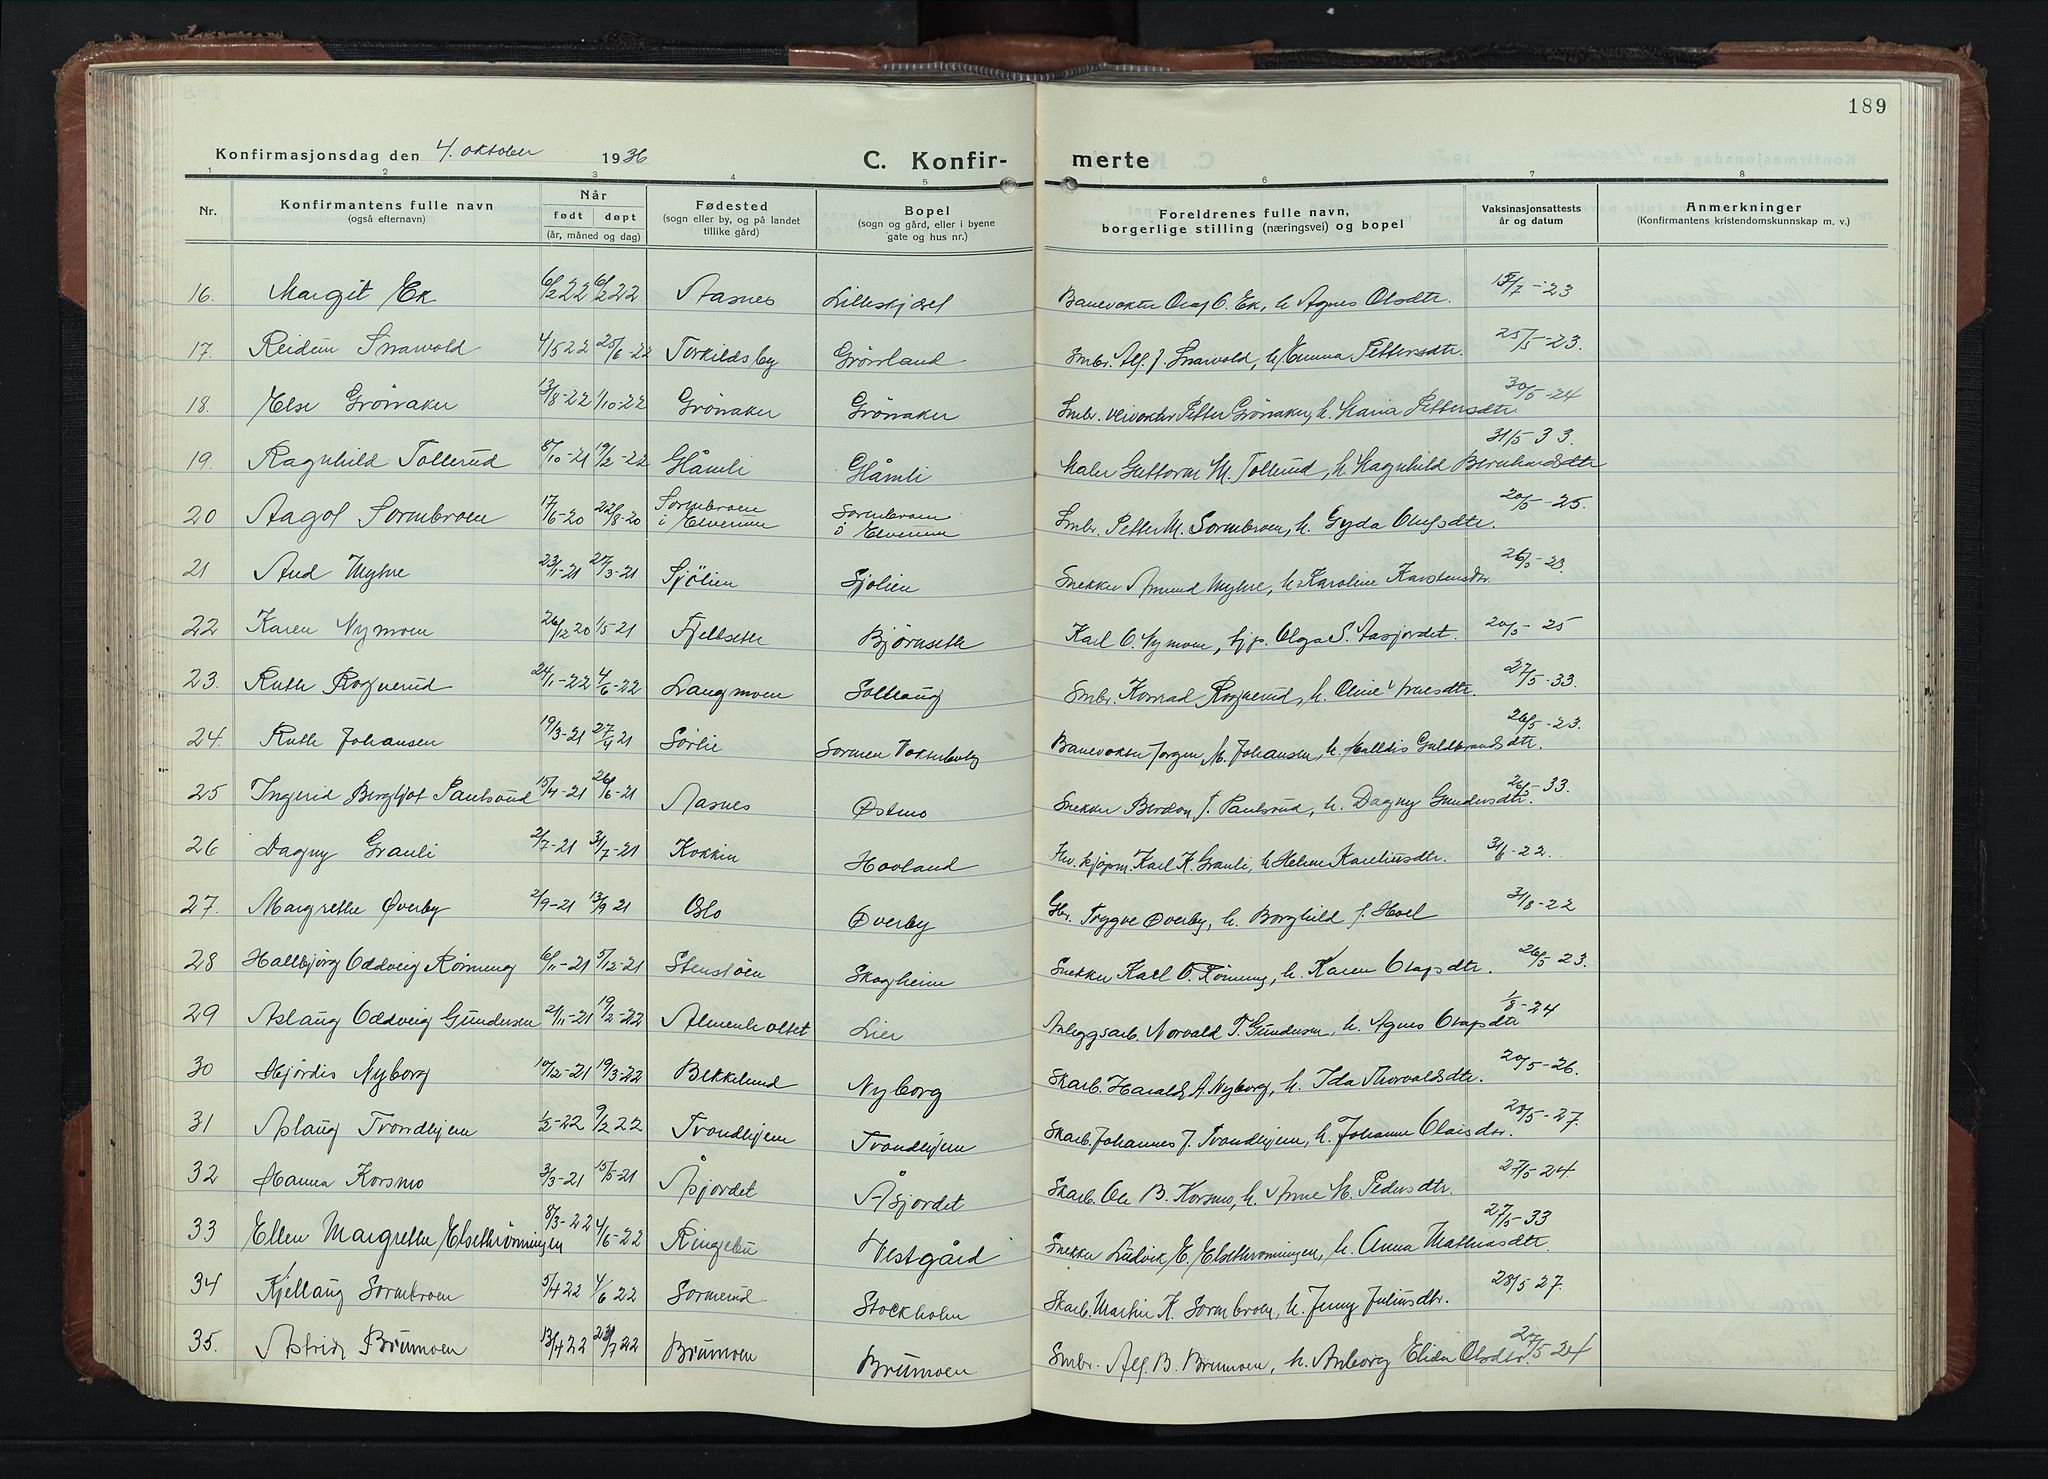 189
Konfirmasjonsdag den 4. oktober 1936
C. Konfir- merte
1 2 3 4 5 6 7 8
Nr. Konfirmantens fulle navn (også efternavn) Når født døpt (år, måned og dag) Fødested (sogn eller by, og på landet tillike gård) Bopel (sogn og gård, eller i byene gate og hus nr.) Foreldrenes fulle navn, borgerlige stilling (næringsvei) og bopel Vaksinasjonsattests år og datum Anmerkninger (Konfirmantens kristendomskunnskap m. v.)
16. Margit Ek 6/2 22 6/2 22 Aasnes Lilleskjæl Banevokter Olaf O. Ek, h. Agnes Olsdtr. 15/7-23
17. Reidun Snarvold 4/5 22 25/6-22 Torkildsby Grönland Smbr. Alf J. Snarvold, h. Emma Pettersdtr. 25/5-23.
18. Else Grönaker 13/8-22 1/10-22 Grönaker Grönaker Smbr. veivokter Petter Grönaker, h. Maria Pettersdtr. 30/5-24
19. Ragnhild Tollerud 8/10-21 19/2-22 Glåmli Glåmli Maler Guttorm M. Tollerud, h. Magnhild Bernhardsdtr 31/5 33.
20 Aagot Sormbroen 17/6-20 22/8-20 Sormbroen i Elverum Sormbroen i Elverum Smbr. Petter M. Sormbroen, h. Gyda Olufsdtr. 20/5-25.
21 Aud Myhre 23/1-21 27/3-21 Sjölien Sjolien Snekker Amund Myhre, h. Karoline Karstensdtr. 26/5-23.
22 Karen Nymoen 26/12 20 1/5-21 Fjellseth Bjørnseth Karl O. Nymoen, hjp. Olga S. Aasjordet. 20/5-25
23. Ruth Rognerud 24/1-22 4/6-22 Langmoen Solhaug Smbr. Konrad Rognerud, h. Oline 27/5-33.
24. Ruth Johansen 19/3-21 27/4 21 Sörlie Sormen Vokterbolig Banevokter Jorgen M. Johansen, h. Halldis Guldbrandsdtr. 26/5-23.
25 Ingerid Bergljot Paulsrud 15/4-21 26/6-21 Aasnes Østmo Snekker Berdon J. Paulsrud, h. Dagny Gundersdtr. 26/5-33.
26 Dagny Granli 2/7-21 31/7-21 Kokkin Hovland Fhv. kjøpm. Karl K. Granli, h. Helene Kareliusdtr. 31/8-22.
27. Margrethe Øverby 2/9-21 13/9 21 Oslo Øverby Gbr. Trygve Øverby, h. Borghild f. Hoel 31/8-22
28 Hallbjörg Oddveig Rönning 6/11-21 5/12-21 Stenstöen Skogheim Snekker Karl O. Rönning, h. Karen Olafsdtr. 26/5 23.
29 Aslaug Oddveig Gundersen 2/11-21 19/2-22 Almenholtet Lier Anleggsarb. Norvald T. Gundersen, h. Agnes Olafsdtr 1/8-24
30 Hjördis Nyborg 10/12-21 19/3-22 Bekkelund Nyborg Skarb. Harald A. Nyborg, h. Ida Thorvaldsdtr. 20/5-26.
31 Aslaug Trondhjem 1/2-22 9/2 22 Trondhjem Trondhjem Skarb. Johannes J. Trondhjem, h. Johanne Olaisdtr. 28/5-27.
32 Hanna Korsmo 3/3-21 15/5-21 Åsjordet Åsjordet Skarb. Ole B. Korsmo, h. Anne M. Pedersdtr. 27/5-24.
33 Ellen Margrethe Elsethrönningen 8/3-22 4/6-22 Ringebu Vestgård Snekker Ludvik E. Elsethrönningen, h. Anna Mathiasdtr. 27/5-33
34 Kjellaug Sormbroen 5/4 22 4/6 22 Sormerud Stockholm Skarb. Martin K. Sormbroen, h. Jenny Juliusdtr. 28/5 27.
35. Astrid Brumoen 13/4 22 23/7 22 Brumoen Brumoen Smbr. Alf B. Brumoen, h. Anborg Elida Olsdtr. 27/5 24